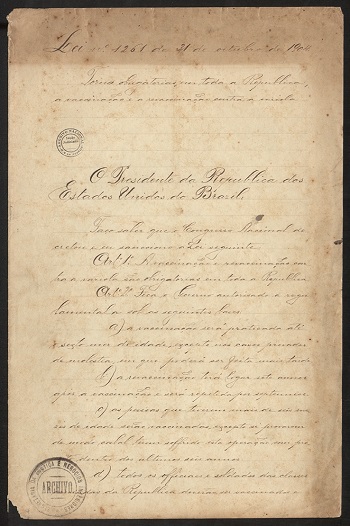 Lei nº 1261 de 31 de outubro de 1904
Torna obrigatorias, em toda a Republica,
a vaccinação e a revaccinação contra a variola
O Presidente da Republica dos
Estados Unidos do Brasil,
Faço saber que o Congresso Nacional de
cretou e eu sancciono a Lei seguinte:
Art. 1º A vaccinação e revaccinação con
tra a variola são obrigatorias em toda a Republica
Art. 2º Fica o Governo autorizado a regu
lamental-a sob as seguintes bases:
a) a vaccinação será praticada até
o sexto mez de idade, excepto nos casos provados
de molestia, em que poderá ser feita mais tarde
b) a revaccinação terá logar sete annos
após a vaccinação e será repetida por septennios
c) as pessoas que tiverem mais de seis me
zes de idade serão vaccinadas, excepto se provarem
de modo cabal terem soffrido esta operação com pro
veito dentro dos ultimos seis annos
d) todos os officiaes e soldados das classes
armadas da Republica deverão ser vaccinados e
JUSTIÇA E NEGOCIOS
ARCHIVO